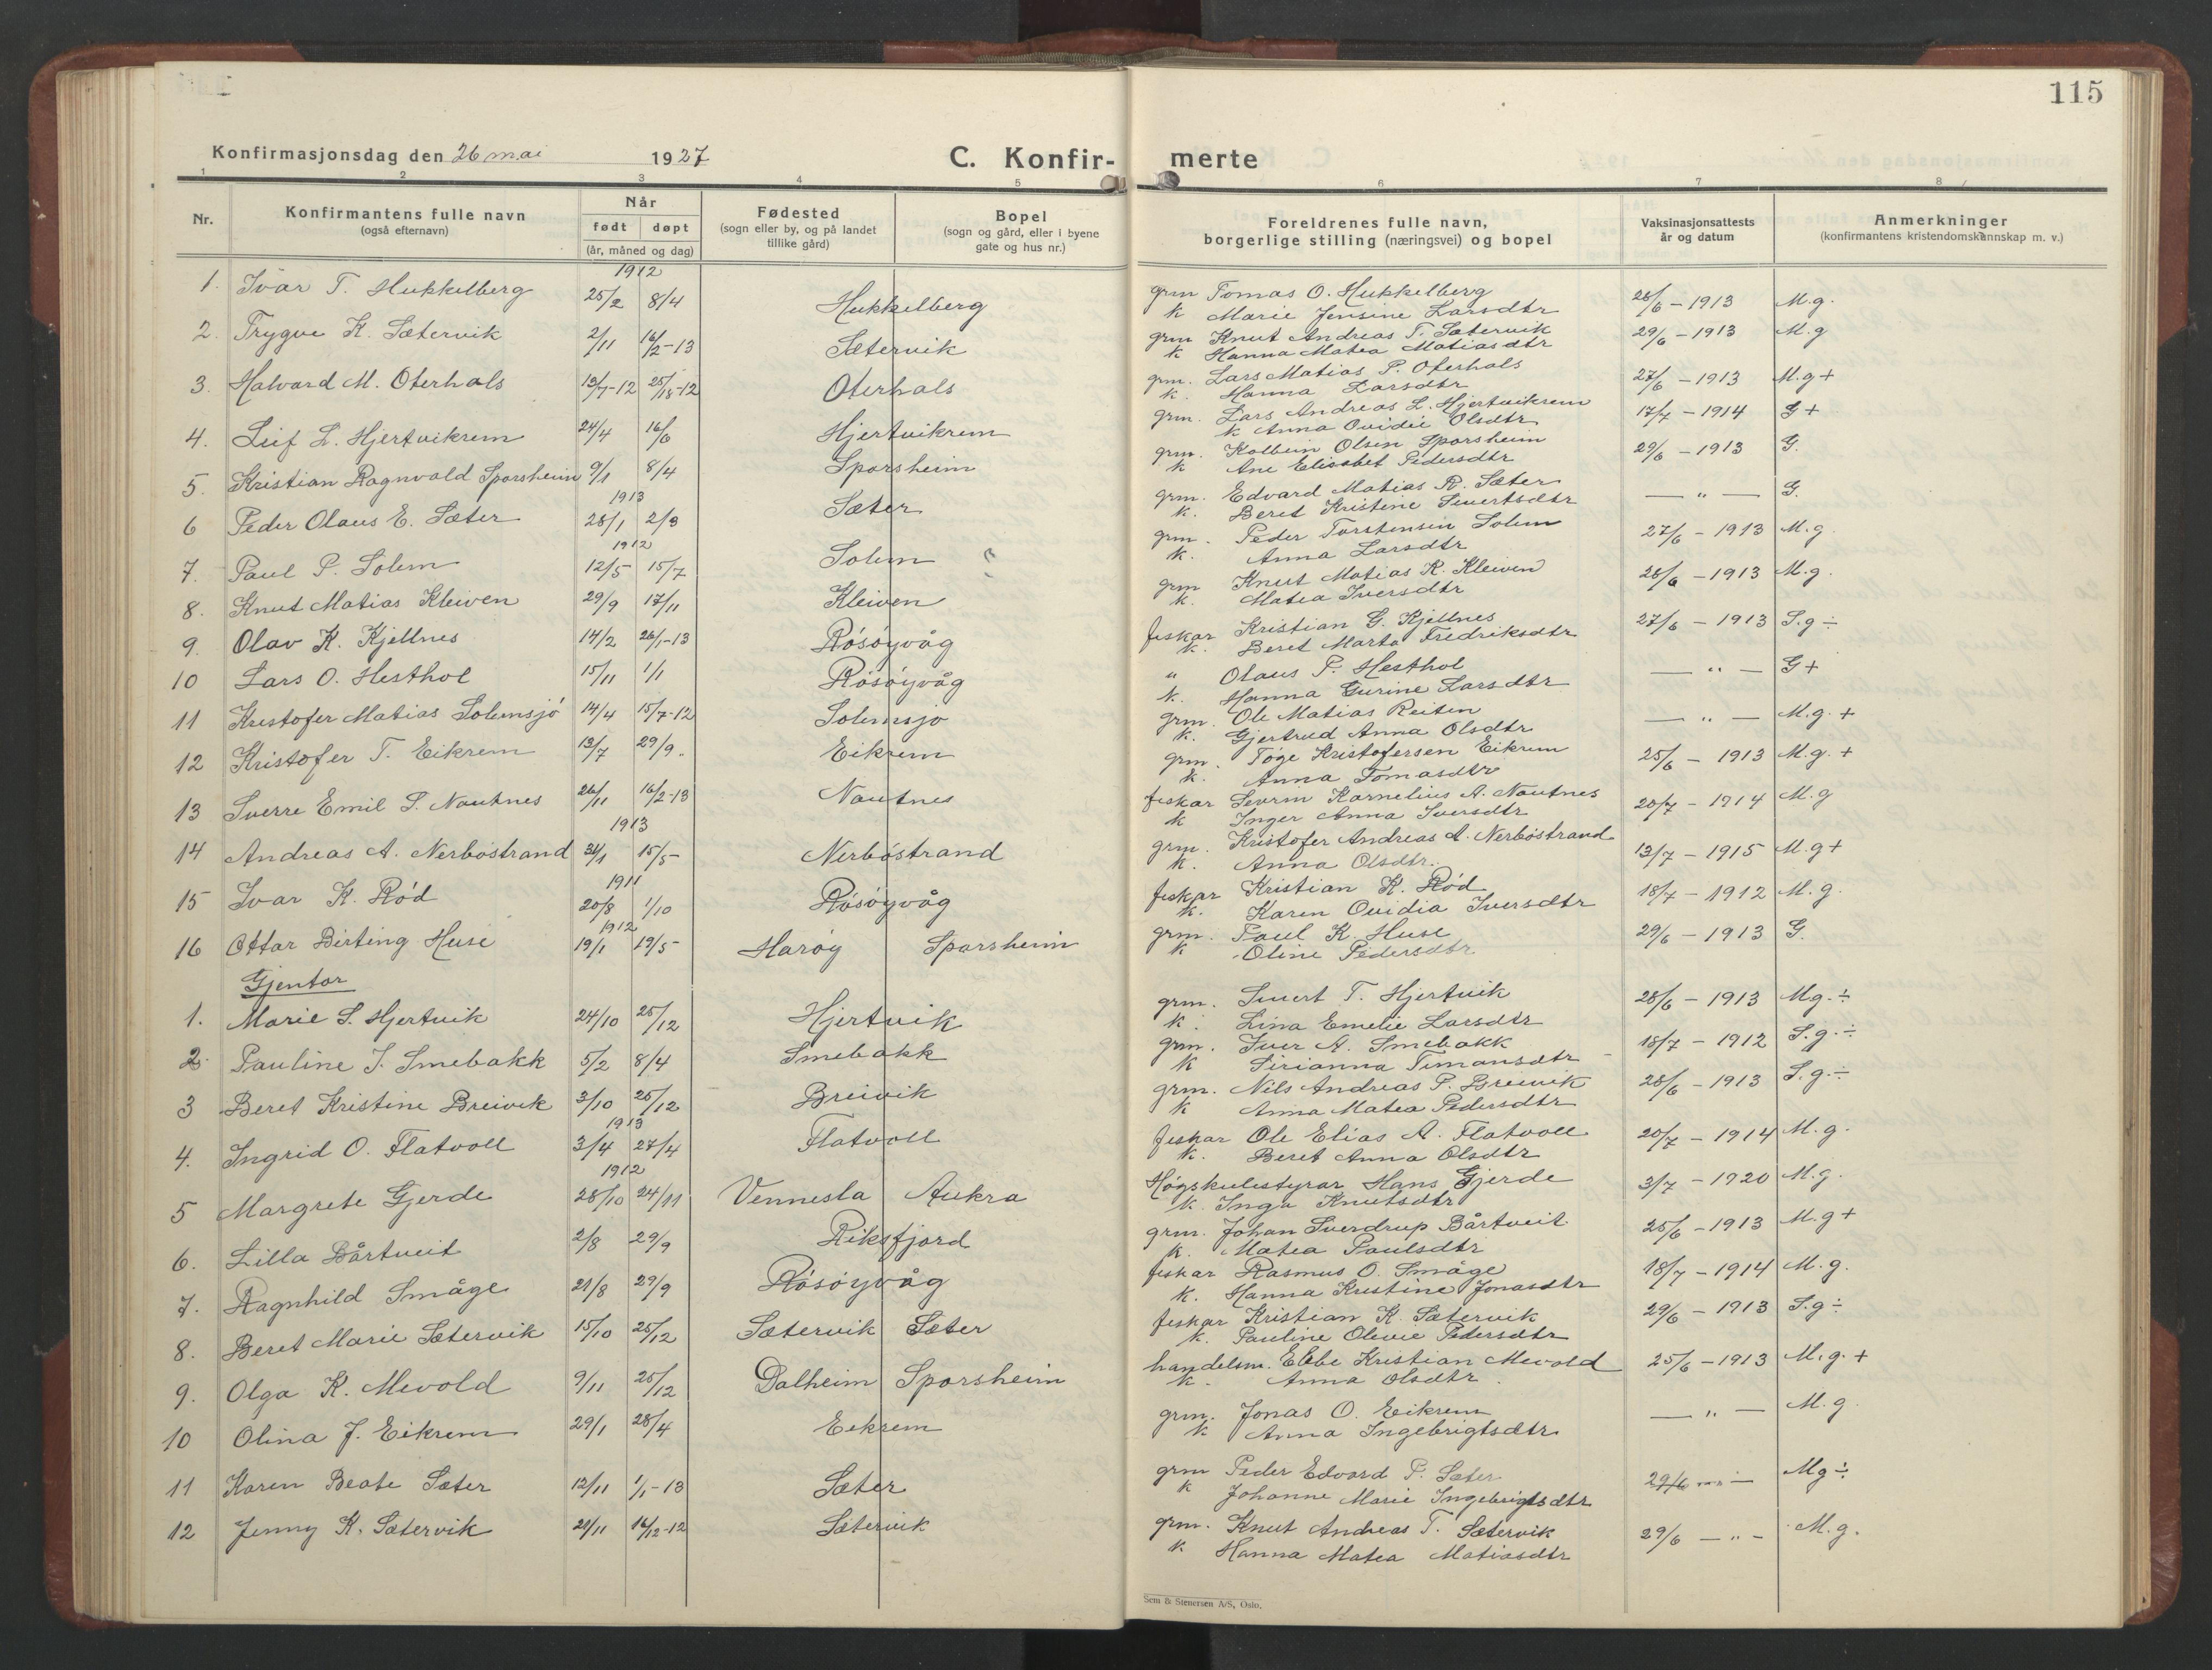 115
Konfirmasjonsdag den 26 mai 1927 C. Konfirmerte
1 2 3 4 5 6 7 8
Nr. Konfirmantens fulle navn (også efternavn) Når født døpt (år, måned og dag) Fødested (sogn eller by, og på landet tillike gård) Bopel (sogn og gård, eller i byene gate og hus nr.) Foreldrenes fulle navn, borgerlige stilling (næringsvei) og bopel Vaksinasjonsattests år og datum Anmerkninger (konfirmantens kristendomskunnskap m. v.)
1912
1. Ivar T. Hukkelberg 25/2 8/4 Hukkelberg grm Tomas O. Hukkelberg 28/6 - 1913 M.g.
k Marie Jensine Larsdtr
2. Trygve K. Sætervik 2/11 16/2-13 Sætervik grm Knut Andreas T. Sætervik 29/6 - 1913 M.g
k Hanna Matea Matiasdtr
3. Halvard M. Oterhals 13/7-12 25/8-12 Oterhals grm. Lars Matias P. Oterhals 27/6 - 1913 M.g+
k. Hanna Larsdtr
4. Leif L. Hjertvikrem 24/4 16/6 Hjertvikrem grm. Lars Andreas L. Hjertvikrem 17/7 - 1914 G+
k Anna Ovidie Olsdtr
5. Kristian Ragnvald Sporsheim 9/1 8/4 Sporsheim grm. Kolbein Olsen Sporsheim 29/6 - 1913 G.
k Ane Elisabet Pedersdtr
1913
6 Peder Olaus E. Sæter 28/1 2/3 Sæter grm. Edvard Matias R. Sæter — " — G.
k. Beret Kristine Sivertsdtr
1912
7. Paul P. Solem 12/5 15/7 Solem grm. Peder Torstensen Solem 27/6 - 1913 M.g.
k. Anna Larsdtr
8. Knut Matias Kleiven 29/9 17/11 Kleiven grm Knut Matias K. Kleiven 28/6 - 1913 M.g.
k. Matea Iversdtr
9. Olav K. Kjellnes 14/2 26/1-13 Røsøyvåg fiskar Kristian G. Kjellnes 27/6 - 1913 S.g ÷
k. Beret Marta Fredriksdtr
10 Lars O. Hesthol 15/11 1/1 Røsøyvåg " Olaus P. Hesthol — " — G+
k. Hanna Gurine Larsdtr
11 Kristofer Matias Solemsjø 14/4 15/7-12 Solemsjø grm. Ole Matias Reiten — " — M.g. +
k. Gjertrud Anna Olsdtr
12 Kristofer T. Eikrem 13/7 29/9 Eikrem grm. Tøge Kristofersen Eikrem 25/6 - 1913 M.g. +
k. Anna Tomasdtr
13 Sverre Emil S. Nautnes 26/11 16/2-13 Nautnes fiskar Sevrin Kornelius A. Nautnes 20/7 - 1914 M.g
k Inger Anna Iversdtr
1913
14 Andreas A. Nerbøstrand 31/1 15/5 Nerbøstrand grm. Kristofer Andreas A. Nerbøstrand 13/7 - 1915 M.g+
k. Anna Olsdtr.
1911
15 Ivar K. Rød 20/8 1/10 Røsøyvåg fiskar Kristian K. Rød 18/7 - 1912 M.g.
k. Karen Ovidia Iversdtr
1912
16 Ottar Birting Huse 19/1 19/5 Harøy Sporsheim grm. Paul K. Huse 29/6 - 1913 G.
k Oline Pedersdtr
Gjentor
1. Marie S. Hjertvik 24/10 25/12 Hjertvik grm. Sivert T. Hjertvik 28/6 - 1913 Mg. ÷
k. Lina Emelie Larsdtr
2. Pauline I. Smebakk 5/2 8/4 Smebakk grm. Iver A. Smebakk 18/7 - 1912 S.g. ÷
k Sirianna Timansdtr
3 Beret Kristine Breivik 3/10 25/12 Breivik grm. Nils Andreas P. Breivik 28/6 - 1913 S.g. ÷
k Anna Matea Pedersdtr
1913
4. Ingrid O. Flatvoll 3/4 27/4 Flatvoll fiskar Ole Elias A. Flatvoll 20/7 - 1914 M.g.
k. Beret Anna Olsdtr
1912
5 Margrete Gjerde 28/10 24/11 Vennesla Aukra Høgskulestyrar Hans Gjerde 3/7 - 1920 M.g.
k. Inga Knutsdtr
6. Lilla Bårtveit 2/8 29/9 Riksfjord grm. Johan Sverdrup Bårtveit 25/6 - 1913 M.g+
k. Matea Paulsdtr
7. Ragnhild Småge 21/8 29/9 Røsøyvåg fiskar Rasmus O. Småge 18/7 - 1914 M.g.
k. Hanna Kristine Jonasdtr
8. Beret Marie Sætervik 15/10 25/12 Sætervik Sæter fiskar Kristian K. Sætervik 29/6 - 1913 S.g ÷
k. Pauline Olevie Pedersdtr
9. Olga K. Mevold 9/11 25/12 Dalheim Sporsheim handelsm. Ebbe Kristian Mevold 25/6 - 1913 M.g. +
k. Anna Olsdtr.
10 Olina J. Eikrem 29/1 28/4 Eikrem grm. Jonas O. Eikrem — " — M.g.
k Anna Ingebrigtsdtr
11 Karen Beate Sæter 12/11 1/1-13 Sæter grm Peder Edvard P. Sæter 29/6 — " — Mg ÷
k Johanne Marie Ingebrigtsdtr
12 Jenny K. Sætervik 21/11 16/12-12 Sætervik grm. Knut Andreas T. Sætervik 29/6 — " — M.g.
k Hanna Matea Matiasdtr
Sem & Stenersen A/S, Oslo.